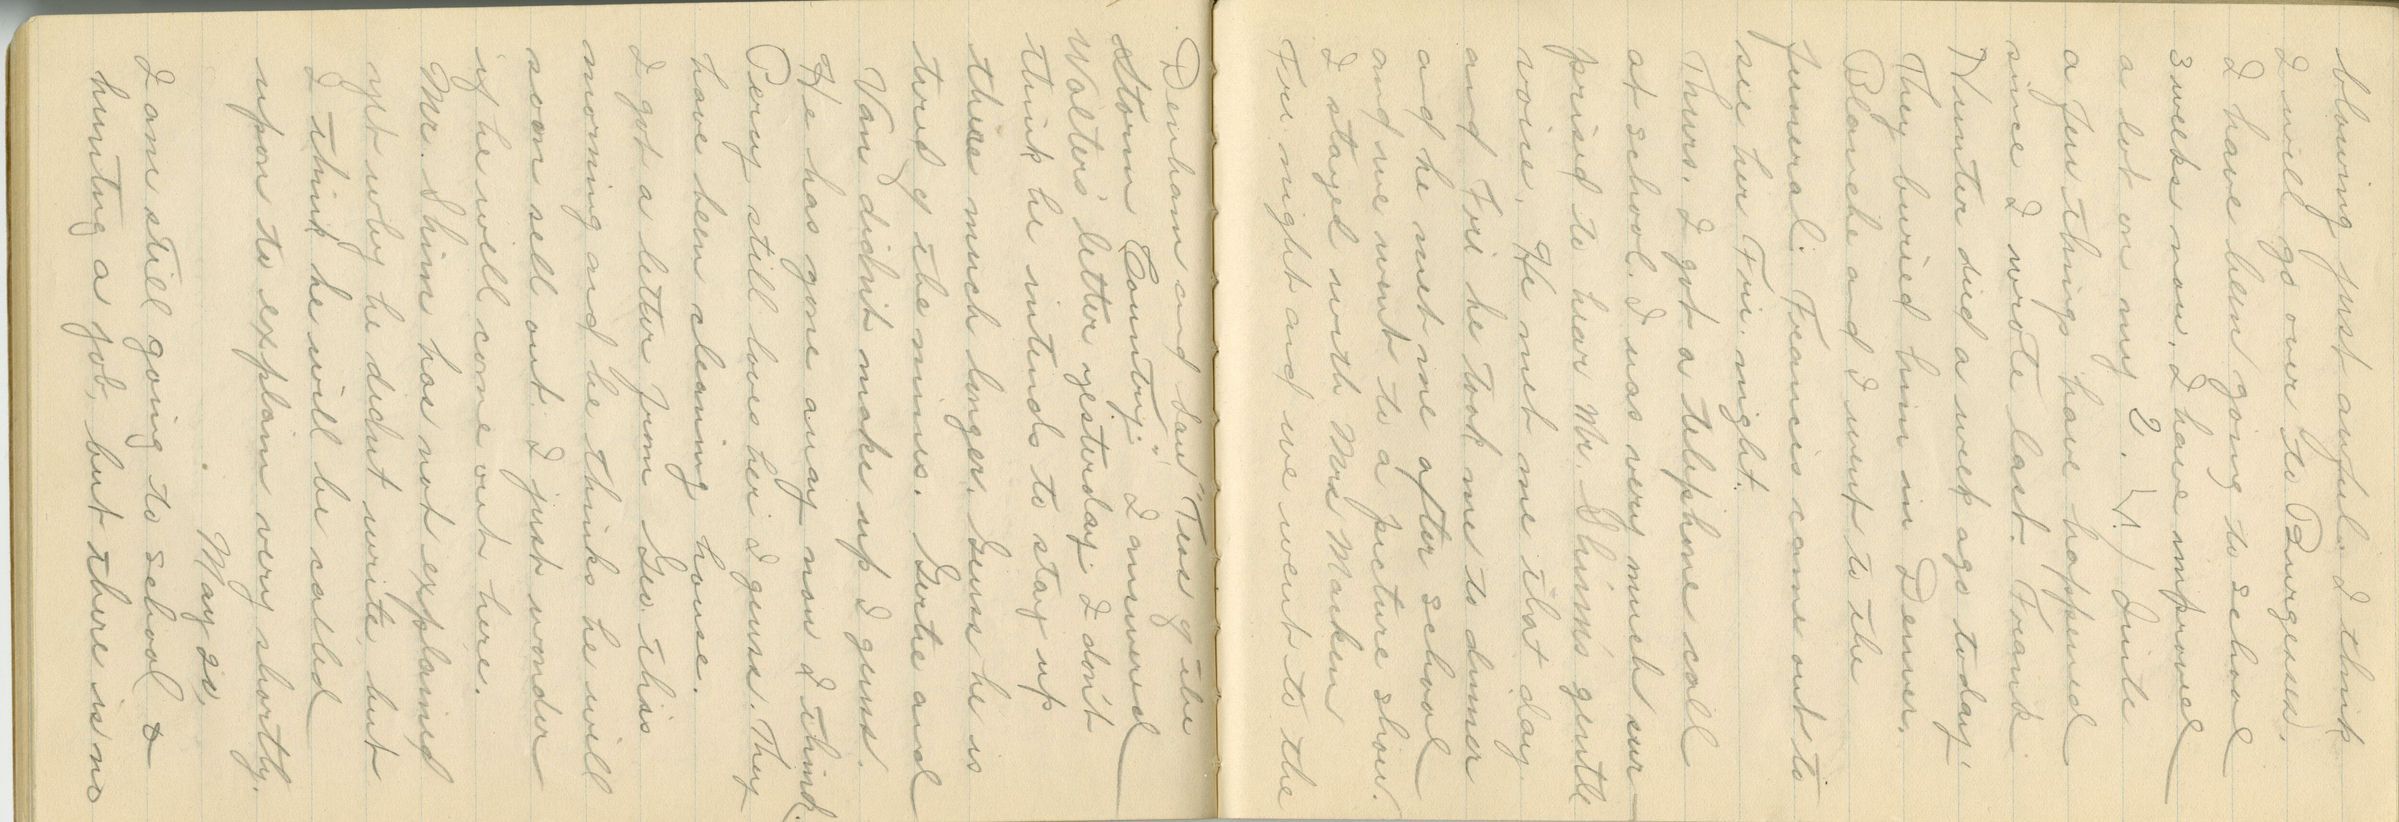 blowing just awful. I think
I will go over to Burgesses.
I have been going to school
3 weeks now. I have improved
a lot on my 2. (!) Quite
a few things have happened
since I wrote last. Frank
Hunter died a week ago today.
They buried him in Denver.
Blanche and I went to the
funeral. Francis came out to
see her Fri. night.
Thurs. I got a telephone call
at school. I was very much sur-
prised to hear Mr. Shim's gentle
voice. He met me that day.
and Fri he took me to dinner
and he met me after school
and we went to a picture show.
I stayed with Mrs Marken
Fri. night and we went to the
Denham and saw "Tess of the
Storm Country." I answered
Walters' letter yesterday. I don't
think he intends to stay up
there much longer. Guess he is
tired of the mines. Gertie and
Van didn't make up I guess.
He has gone away now I think.
Percy still loves her I guess. They
have been cleaning house.
I got a letter from Geo. this
morning and he thinks he will
soon sell out. I just wonder
if he will come out here.
Mr. Shim has not explained
yet why he didn't write, but
I think he will be called
upon to explain very shortly.
May 20,
I am still going to school &
hunting a job, but there is no